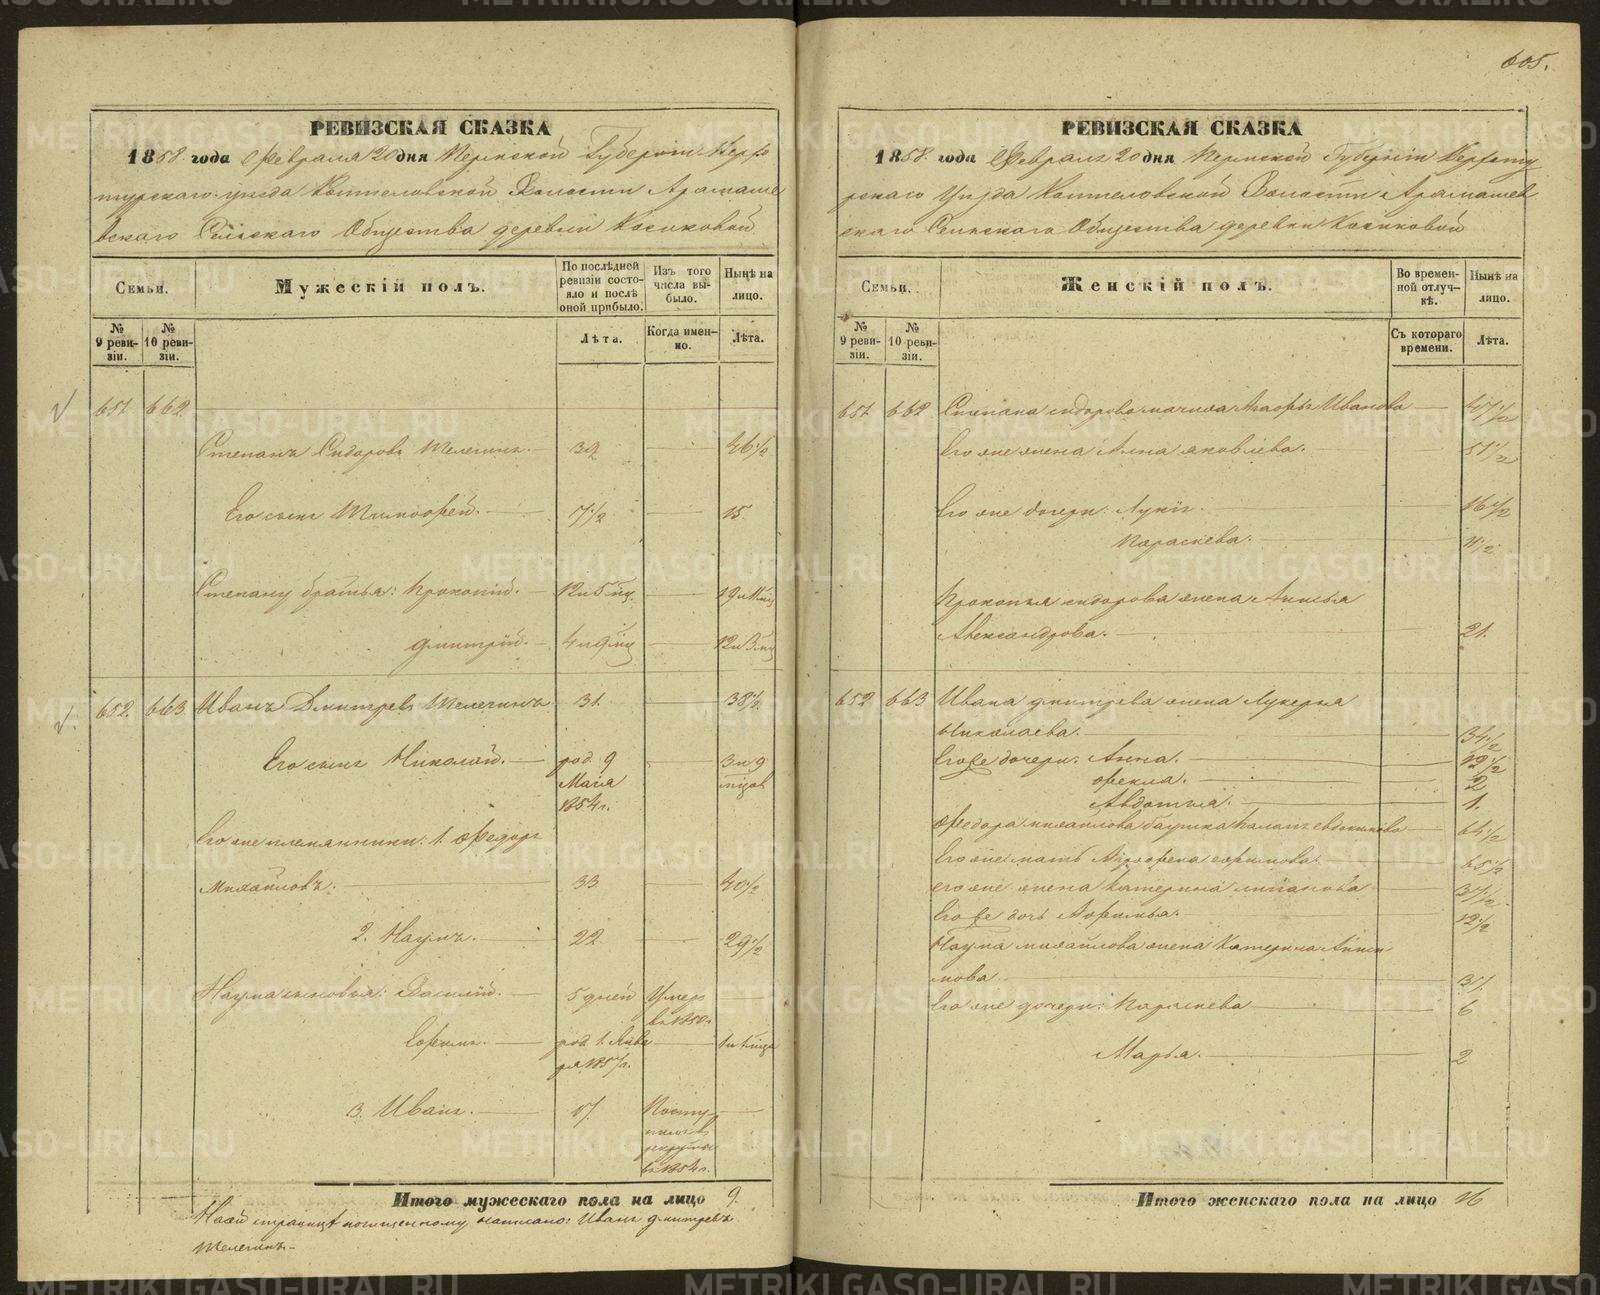 605.
РЕВИЗСКАЯ СКАЗКА
1858 года Февраля 20 дня Пермской Губернiи Верхо
турскаго уезда Коптеловской Волости Арамаше
вскаго Сельскаго Общества деревни Косиковой
Семьи.
Мужескiй полъ.
По послѣдней ревизiи состояло и послѣ оной прибыло.
Изъ того числа выбыло.
Нынѣ на лицо.
№ 9 ревизiи.
№ 10 ревизiи.
Лѣта.
Когда именно.
Лѣта.
651 662
Степанъ Сидоровъ Телегинъ. 39 46 1/2
Его сынъ Тимофей. 7 1/2 15
Степану братья: Прокопiй. 12 и 5 мц. 19 и 11 мц
Дмитрiй. 4 и 9 мц 12 и 3 мц
652. 663 Иванъ Дмитревъ Телегинъ 31. 38 1/2
Его сынъ Николай. род. 9 Мая 1854 г. 3 и 9 мцов
Его же племянники: 1. Федоръ
Михайловъ. 33 40 1/2
2. Наумъ. 22 29 1/2
Наума сыновья: Василiй. 5 дней Умер въ 1850 г.
Ефимъ. род 1. Янва ря 1857 г.
3. Иванъ. 17 Посту пилъ в рекруты в 1854 г.
Итого мужескаго пола на лицо 9.
На сей странице почищенному написано: Иванъ Дмитревъ
Телегинъ.
РЕВИЗСКАЯ СКАЗКА
1858 года Февраля 20 дня Пермской Губернiи Верхоту
рскаго Уезда Коптеловской Волости Арамашев
скаго Селнскаго Общества деревни Косиковой
Семьи.
Женскiй полъ.
Во временной отлучкѣ.
Нынѣ на лицо.
№ 9 ревизiи.
№ 10 ревизiи.
Съ котораго времени.
Лѣта.
651 662 Степана Сидорова мачиха Агафья Иванова 47 1/2
Его же жена Анна Яковлева. 51 1/2
Его же дочери: 16 1/2
Параскева. 11 1/2
Прокопья Сидорова жена Анисья
Александрова. 21.
652 663 Ивана Дмитрева жена Лукерья
Николаева. 34 1/2
Его же дочери: Анна. 12 1/2
Фекла. 2
Авдотья. 1.
Федора Михайлова 64 1/2
Его же мать Афросенья Ефимова 65 1/2
Его же жена Катерина 37 1/2
Его же дочь Афимья. 12 1/2
Наума Михайлова жена Катерина Аниси
мова 31.
Его же дочери: Параскева 6
Марья. 2
Итого женскаго пола на лицо 16
METRIKI.GASO-URAL.RU